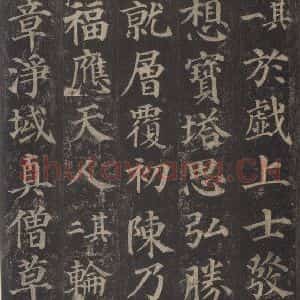 其一於戲上士發
想寶塔思弘勝
就層覆初陳乃
福應天人其二輪
章淨域真僧草
shufawang.CN